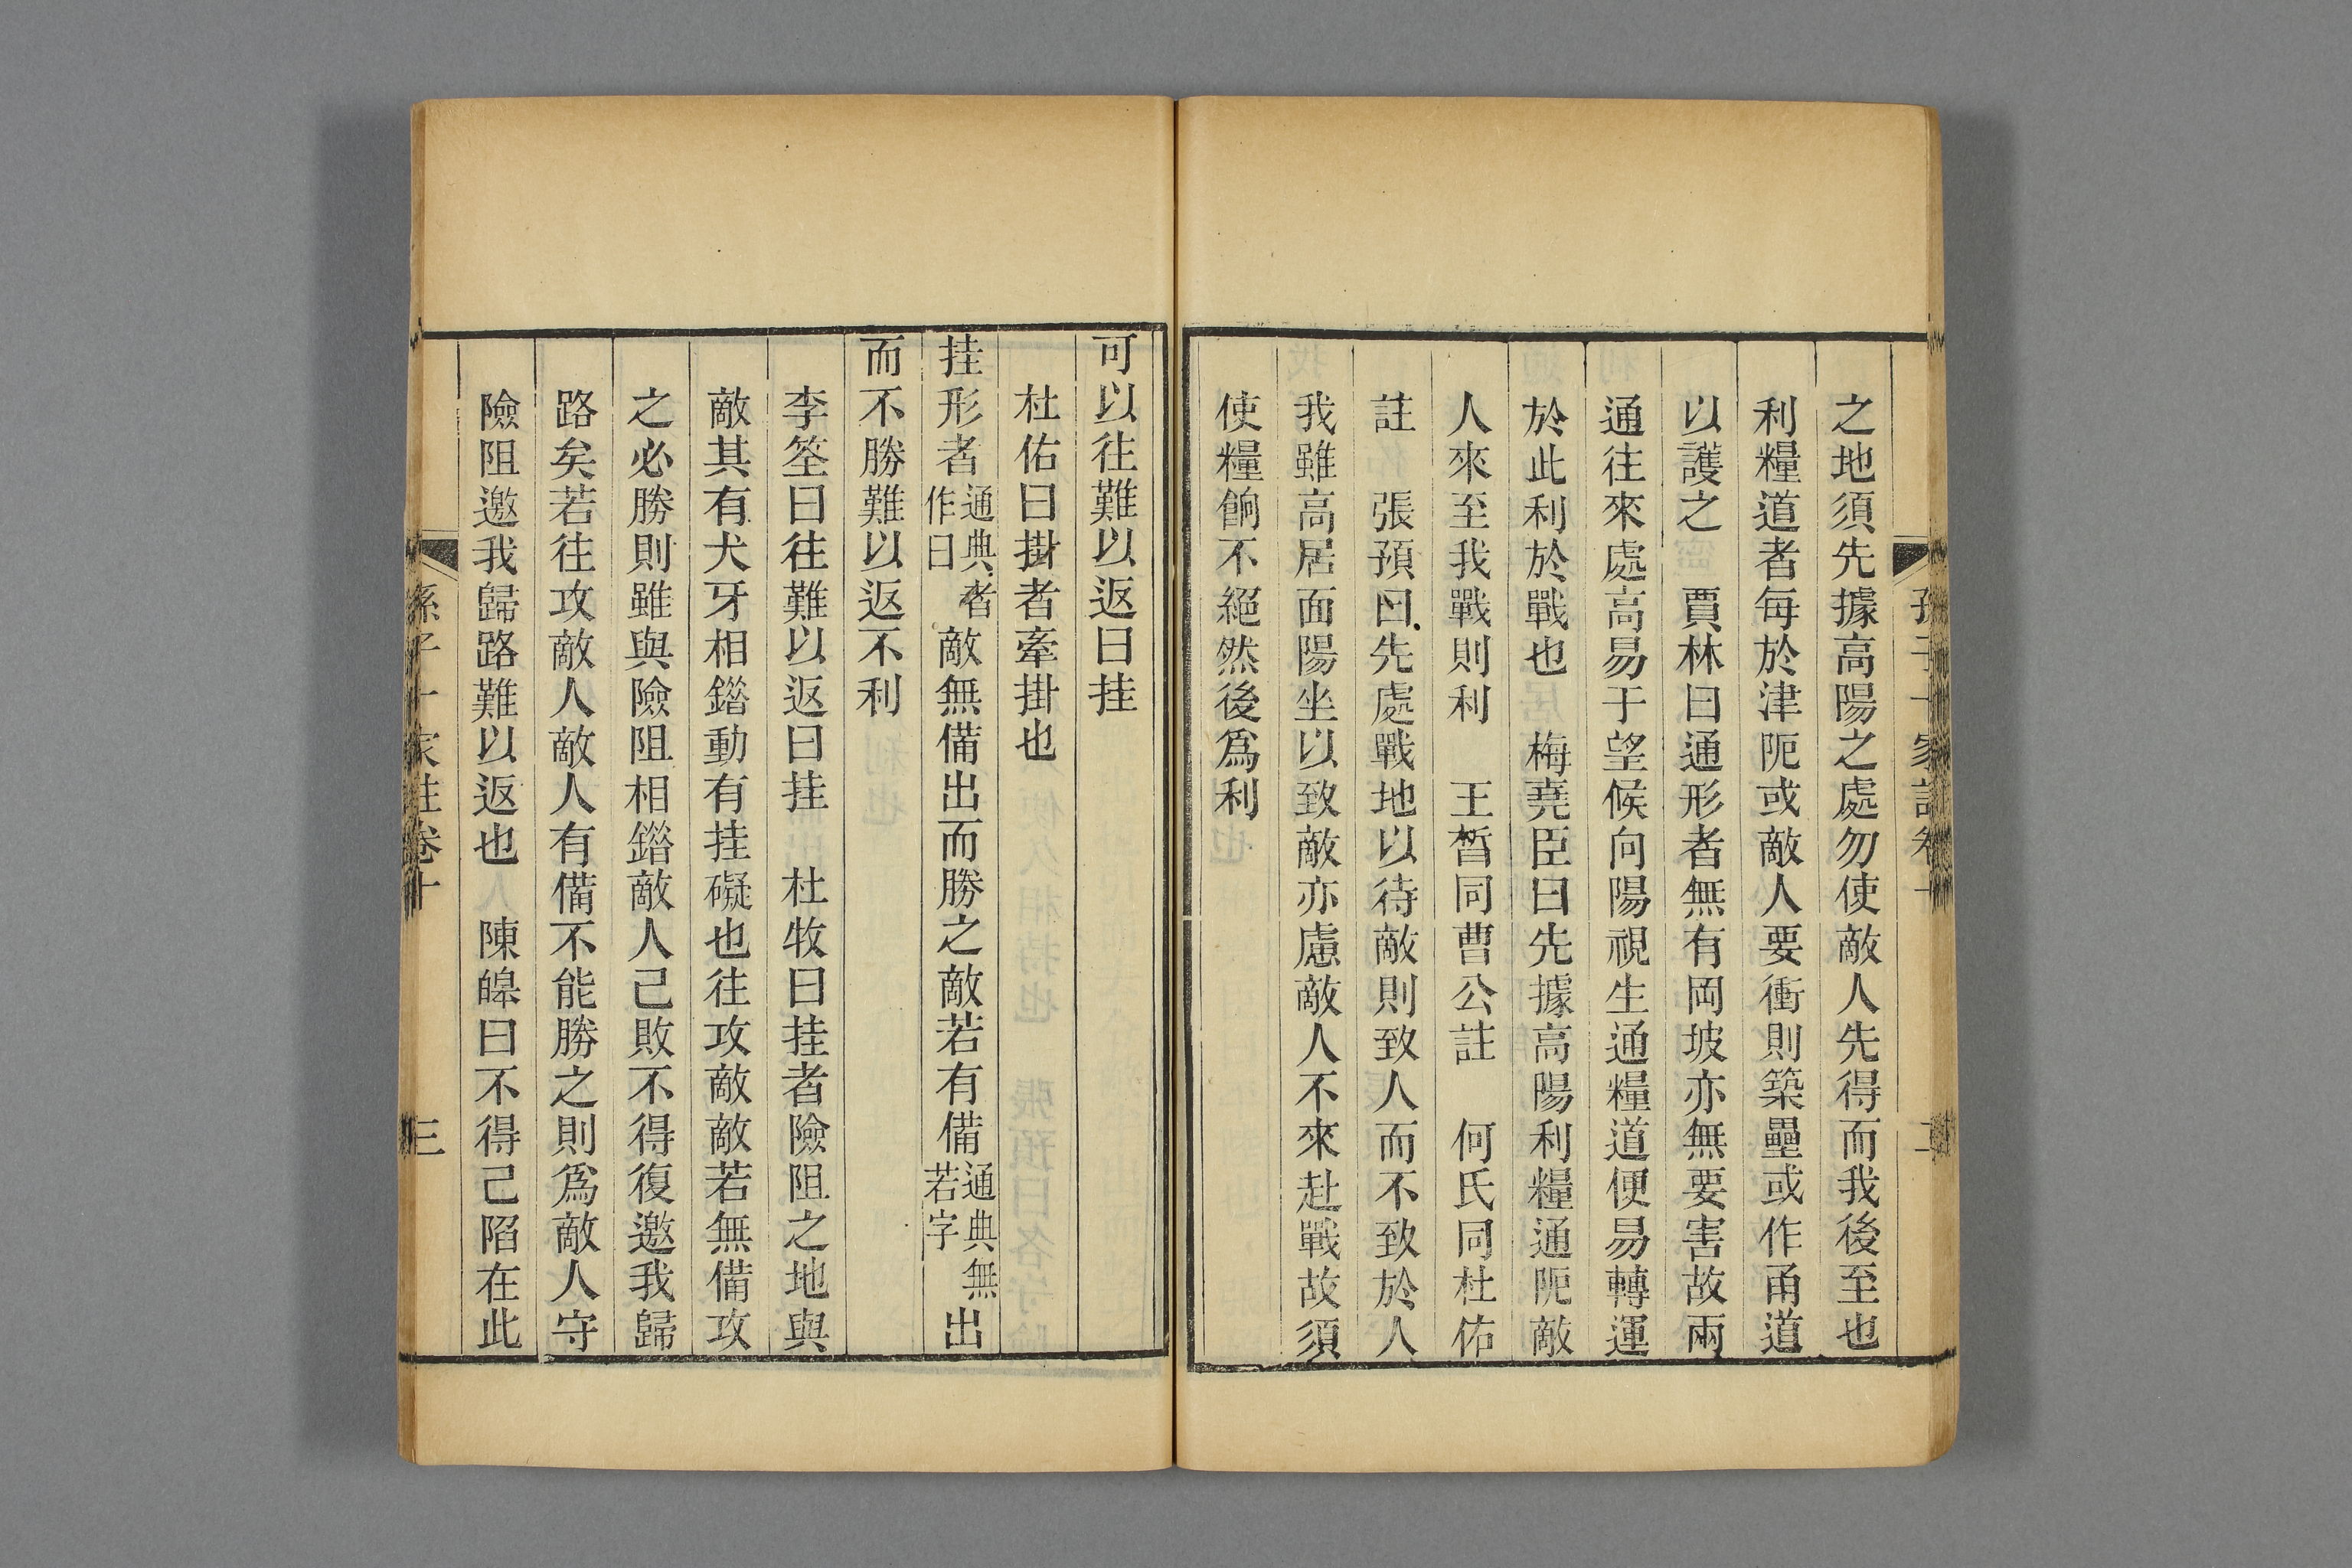 之地須先據高陽之處勿使敵人先得而我後至也
利糧道者每於津阨或敵人要衝則築壘或作甬道
以護之　賈林曰通形者無有岡坡亦無要害故兩
通往來處高易于望候向陽視生通糧道便易轉運
於此利於戰也　梅堯臣曰先據高陽利糧通阨敵
人來至我戰則利　王晳同曹公註　何氏同杜佑
註　張預曰先處戰地以待敵則致人而不致於人
我雖高居面陽坐以致敵亦慮敵人不來赴戰故須
使糧餉不絕然後爲利
可以往難以返曰挂
杜佑曰掛者牽掛也
挂形者通典者作曰敵無備出而勝之敵若有備通典無若字出
而不勝難以返不利
李筌曰往難以返曰挂　杜牧曰挂者險阻之地與
敵其有犬牙相錯動有挂礙也往攻敵敵若無備攻
之必勝則雖與險阻相錯敵人己敗不得復邀我歸
路矣若往攻敵人敵人有備不能勝之則爲敵人守
險阻邀我歸路難以返也　陳皥曰不得己陷在此
孫子十家註卷十
三